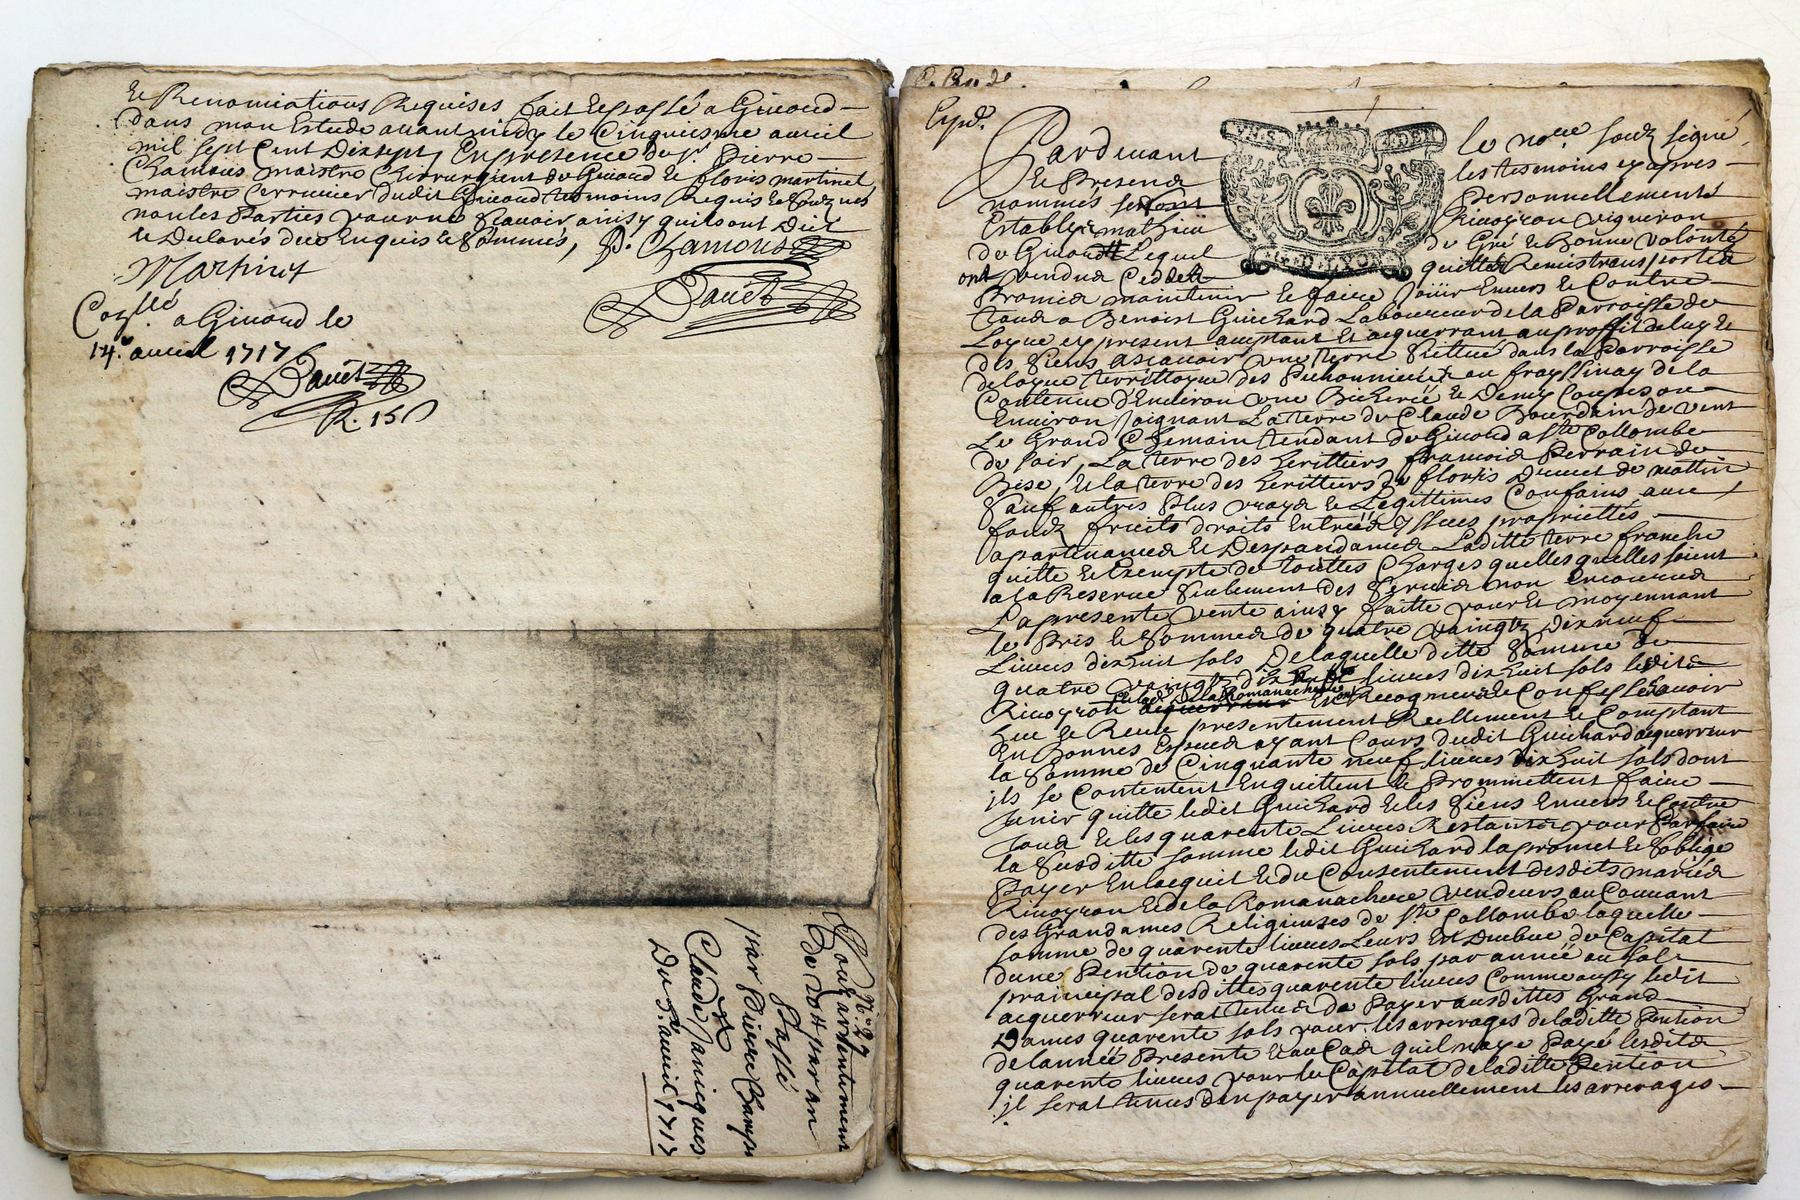 et Renonciations Requises fait et passé a Givord
dans mon Estude avant midy le Cinquiesme avril
mil sept Cent Dixsept, En presence de sr. Pierre
Chamous maistre Chirurgient de Givord et floris martinet
maistre Serrurier dudit Givord tesmoins Requis et Sousignes
non les Parties pour ne scavoir ainsy quils ont Dit
et Declarés de ce Enquis et Sommés, P. Chamous
Martinet
a Givord le
14e. avril 1717
R. 15 s
No. 27
par Pierre
Passé
a
Claude Janicques
Du 5e. avril 1717
Expd.
Pardevant le nore. souz signé
et Presend les tesmoins cy apres
nommés seront Personnellement
Establis mathieu Rivoyron vigneron
de Givord Lequel de Gré et Bonne volonté
ont vendud Ceddé quitté Remis transporté
Promet maintenir et faire Jouir Envers et Contre
Toud a Benoist Guichard Laboureur de la Parroisse de
Loyre cy present acceptant et acquerrant au proffit de luy et
des siens ascavoir une terre scittué dans la Parroisse
de loyre territtoyre des
Contenue d'Environ une Bicheréé et Demy Couppe ou
Environ Joignant La terre de Claude Bourdain de vent
Le Grand Chemain tendant de Givord a Ste Collombe
de soir, La terre des herittiers francois Perrain de
Bise, et la terre des herittiers de floris de mattin
Sauf autres Plus vrays et Legittimes Confains avec
fond fruits droits Entréé yssues propriettés
apartenances et Despandances Laditte terre franche
quitte et Exempte de touttes Charges quelles quelles soient
a la Reserve seulement des servis non Encourus
La presente vente ainsy faitte pour et moyennant
le Pris et Somme de quatre vaingtz dix neuf
Livres dixhuit sols De laquelle ditte Somme de
quatre vaingtz dix neuf livres dixhuit sols ledit
Rivoyron et lad. De la Romanachere ont Recogneus et Confessé avoir
heu et Receu presentement Reellement et Comptant
En Bonnes Espece ayant Cours dudit Guichard acquerreur
la Somme de Cinquante neuf livres dixhuit sols dont
ils se Contentent En quittent et Promettent faire
tenir quitte ledit Guichard et les siens Envers et Contre
Toud et les quarente Livres Restante pour Parfaire
la Susditte somme ledit Guichard la promet et soblige
Payer En lacquit et du Consentement desdits mariés
Rivoyron et de la Romanachere vendeurs au Couvant
des Grandames Religieuses de Ste Collombe laquelle
somme de quarente livres Leurs Est Dheue de Capital
dune Pention de quarente sols par année au sol
praincipal desdittes quarente livres Comme aussy ledit
acquerreur serat tenu de Payer ausdittes Grand
Dames quarente sols pour les arrerages de laditte Pention
de lannéé Presente et au Cad quil naye Payé lesdits
quarente livres pour le Capital de laditte Pention
il serat tenus den payer annuellement les arrerages